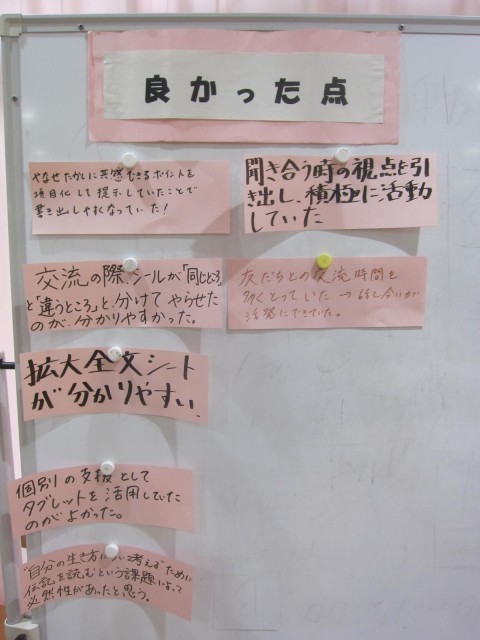 良かった点
やなせたかしに共感できるポイントを
項目化して提示していたことで
書き出しやすくなっていた！
聞き合う時の視点を引
き出し、積極的に活動
していた
交流の際、シールが「同じところ」
と「違うところ」と分けてやらせた
のが、分かりやすかった。
友だちとの交流時間を
多くとっていた→話し合いが
活発にできていた。
拡大全文シート
が分かりやすい。
個別の支援として
タブレットを活用していた
のがよかった。
"自分の生き方について考える"ために
伝記を読むという課題によって
必然性があったと思う。